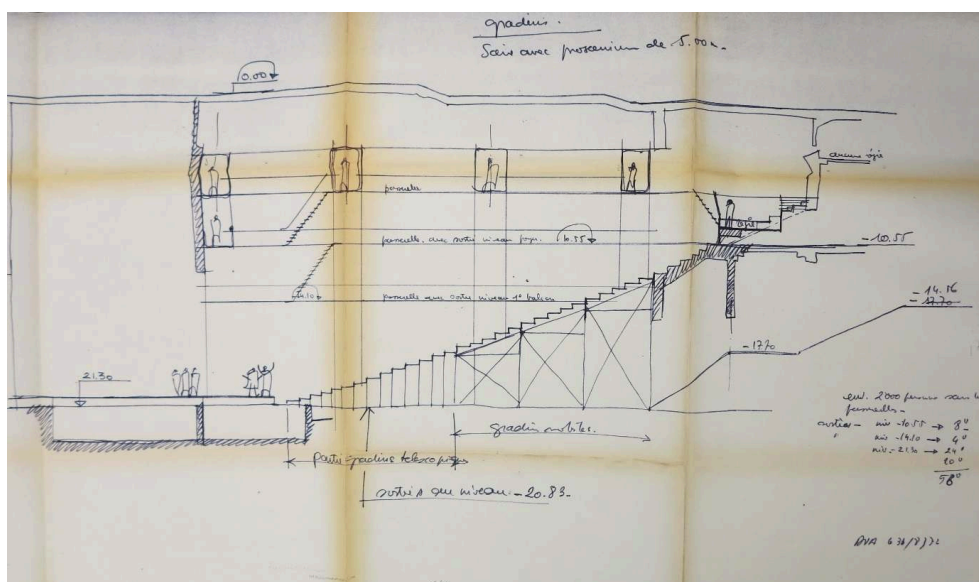 gradins.
Soeis avec proscenium de 5.00m.
0.00
passerelles
passerelles avec sorties niveau foyer.
10.55
14.10
passerelles avec sorties niveau 1° balcon
-10.55
-14.16
-17.70
-17.70
21.30
gradins mobiles.
partie gradins telescopiques
sorties au niveau -20.83-
env. 2000 personnes sans les
passerelles -
sorties - niv -10.55 → 8"
niv -14.10 → 6"
niv. -21.30 → 24"
20"
58"